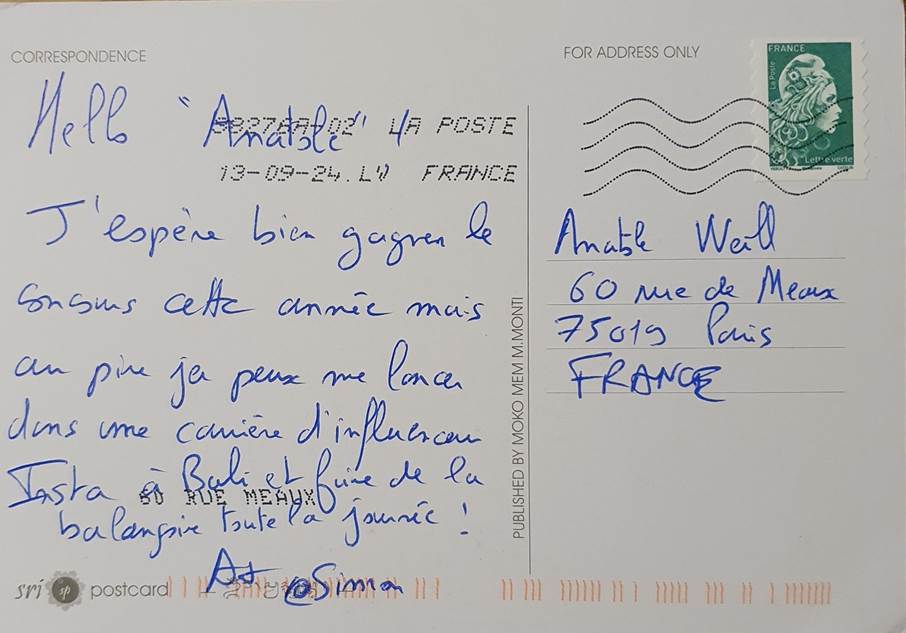 CORRESPONDENCE
FOR ADDRESS ONLY
FRANCE
La Poste
Lettre verte
Hello "Anatole"
LA POSTE
13-09-24. FRANCE
J'espère bien gagner le
concours cette année mais
au pire je peux me lancer
dans une carrière d'influenceur
Insta à Bali et faire de la
balançoire toute la journée !
A+ @Simon
60 RUE MEAUX
Anatole Weill
60 rue de Meaux
75019 Paris
FRANCE
PUBLISHED BY MOKO MEM M.MONTI
sri sp postcard